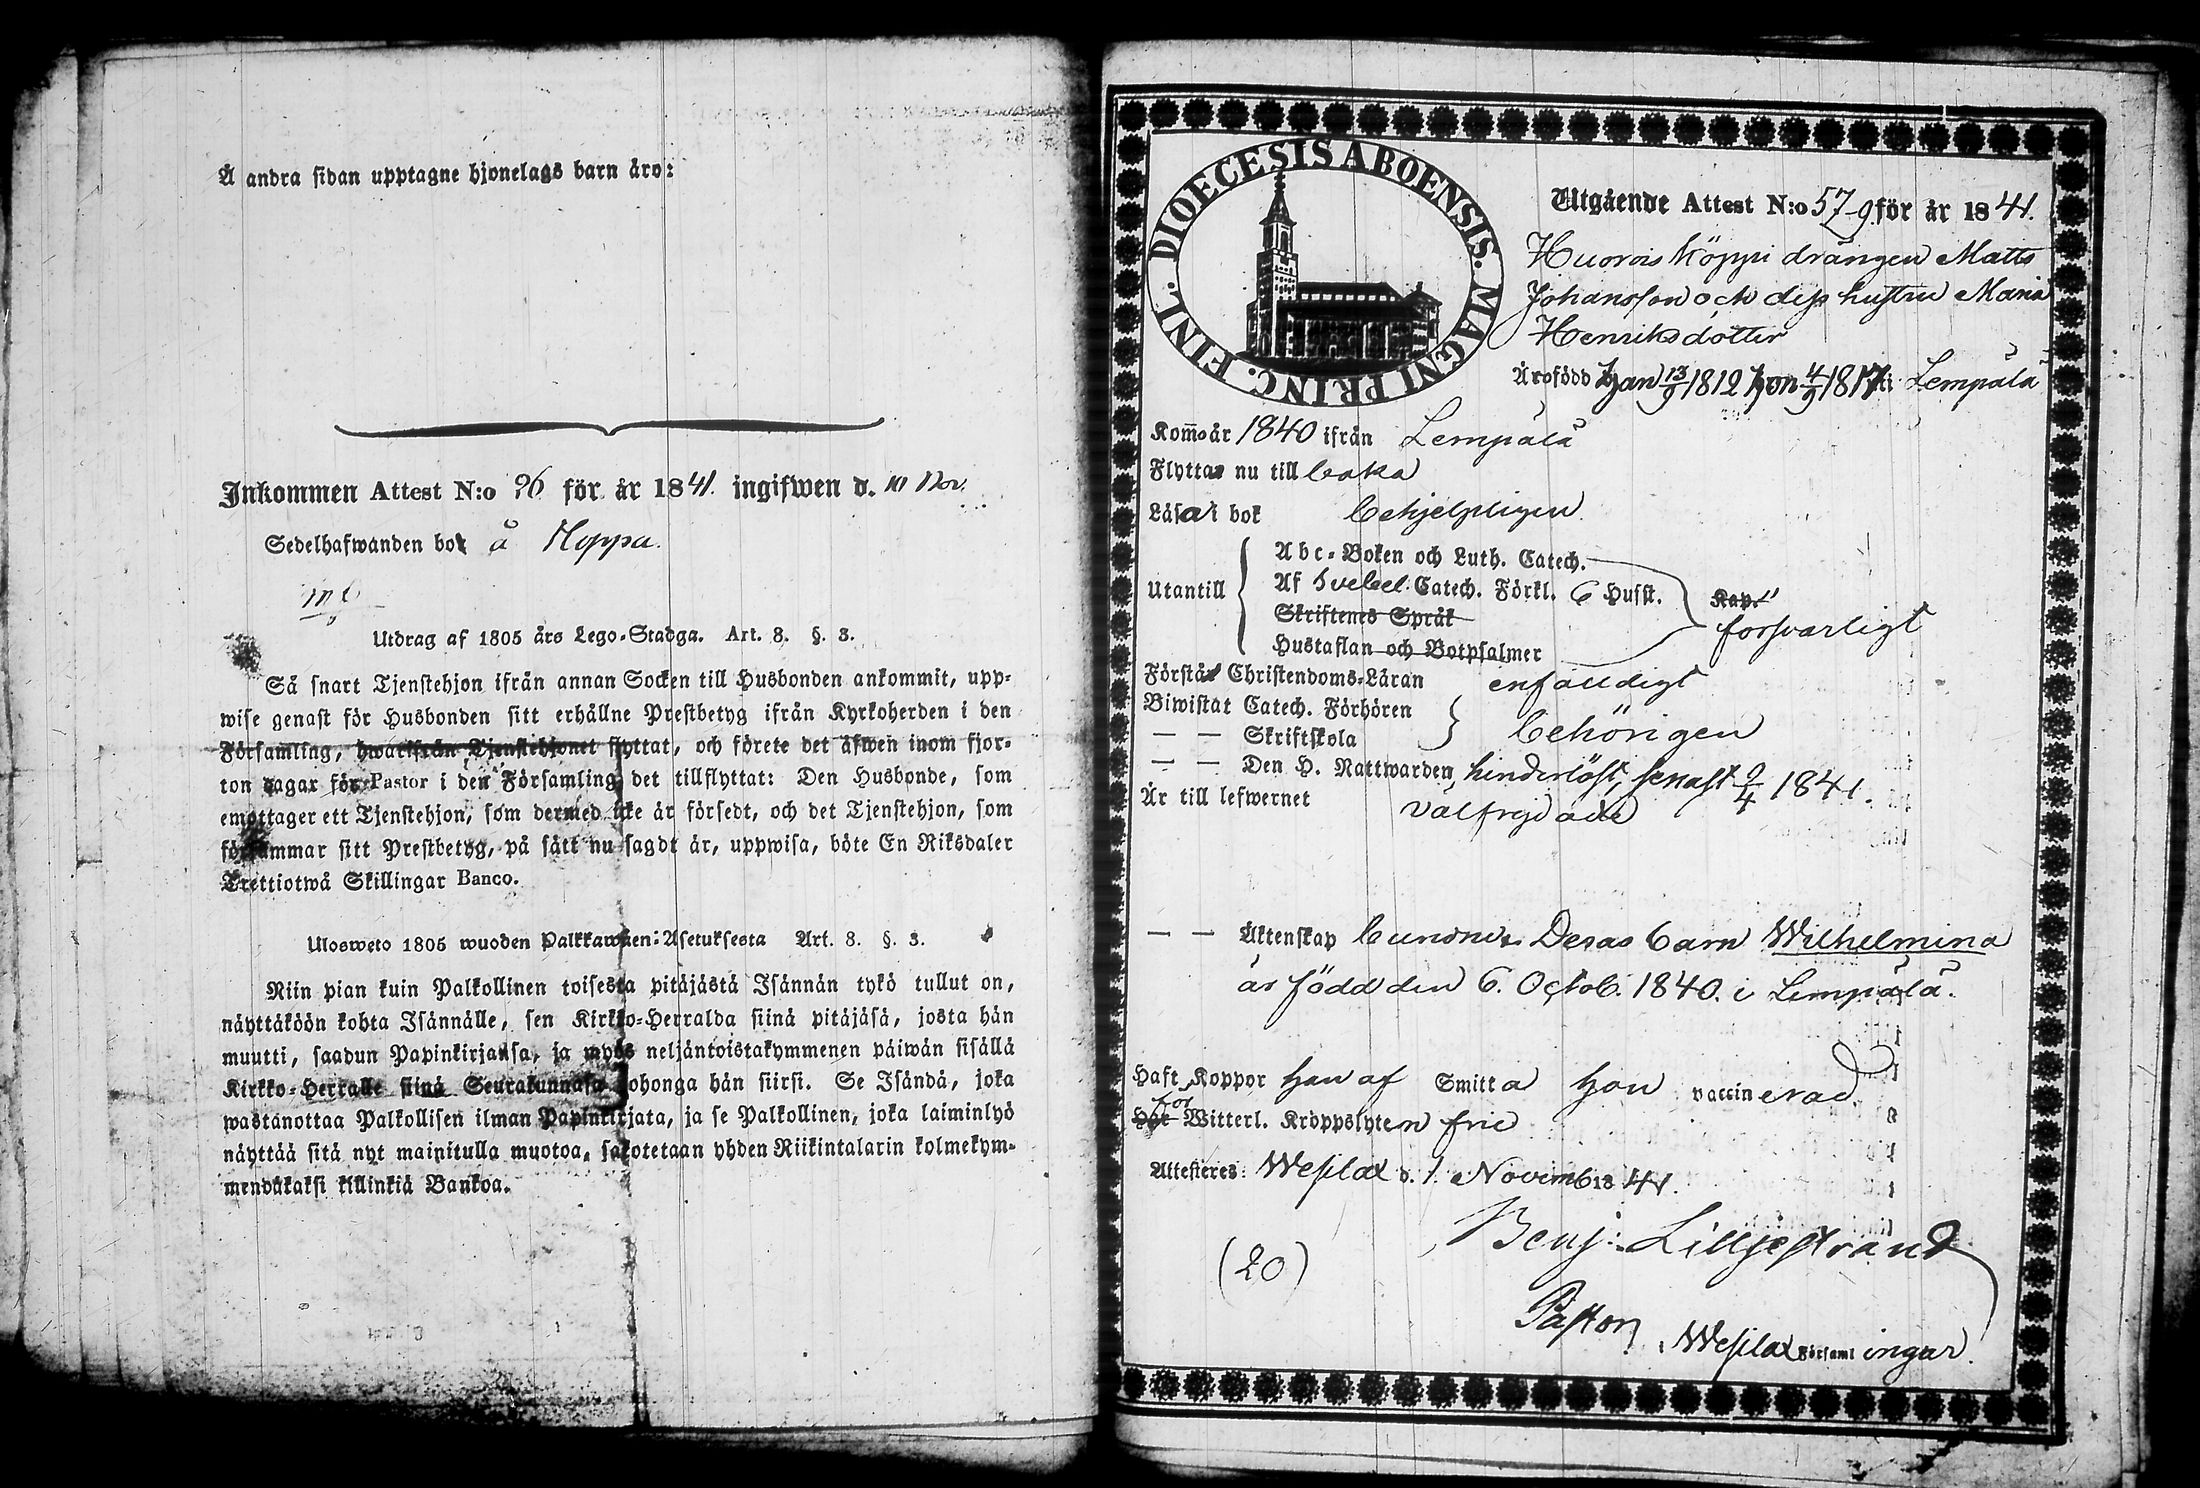 Å andra sidan upptagne hjonelags barn äro:
Inkommen Attest N:o 96 för år 1841. ingifwen d. 10 Nov.
Sedelhafwanden bor å Hoppa.
Utdrag af 1805 års Lego-Stadga. Art. 8. §. 3.
Så snart Tjenstehjon ifrån annan Socken till Husbonden ankommit, upp-
wise genast för Husbonden sitt erhållne Prestbetyg ifrån Kyrkoherden i den
Församling, hwarifrån Tjenstehjonet flyttat, och förete det äfwen inom fjor-
ton dagar för Pastor i den Församling det tillflyttat: Den Husbonde, som
emottager ett Tjenstehjon, som dermed icke är försedt, och det Tjenstehjon, som
försummar sitt Prestbetyg, på sätt nu sagdt är, uppwisa, böte En Riksdaler
Trettiotwå Skillingar Banco.
Ulosweto 1805 wuoden Palkkawäen-Asetuksesta Art. 8. §. 3.
Niin pian kuin Palkollinen toisesta pitäjästä Isännän tykö tullut on,
näyttäköön kohta Isännälle, sen Kirkko-Herralda siinä pitäjäsä, josta hän
muutti, saadun Papinkirjansa, ja myös neljäntoistakymmenen päiwän sisällä
Kirkko-Herralle siinä Seurakunnasa johonga hän siirsi. Se Isändä, joka
wastanottaa Palkollisen ilman Papinkirjata, ja se Palkollinen, joka laiminlyö
näyttää sitä nyt mainitulla muotoa, sakotetaan yhden Riikintalarin kolmekym-
mendäkaksi killinkiä Bankoa.
DIOECESIS ABOENSIS. MAGNI PRINC. FINL.
Utgående Attest N:o 57-9 för år 1841.
Huorois Köppi drängen Matts
Johansson och dess hustru Maria
Henriksdotter
Äro född han 13/9 1812 hon 4/9 1817 i Lempälä
Kommo år 1840 ifrån Lempälä
Flyttar nu till
Läsa i bok behjelpligen
Abc-Boken och Luth. Catech.
Utantill Af Svebel. Catech. Förkl. 6 Husst. Kap.
Skriftenes Språk försvarligt
Hustaflan och Botpsalmer
Förstå Christendoms-Läran enfaldigt
Biwistat Catech. Förhören
— — Skriftskola behörigen
— — Den H. Nattwarden hinderlöst, senast 9/4 1841.
Är till lefwernet välfrejdade
— — Äktenskap bundne. Deras barn Wilhelmina
är född den 6. Octob. 1840. i Lempälä.
Haft Koppor han af Smitta hon vaccinerad
för
Har Witterl. Kroppslyten frie
Attesteres: Wesilax d. 1. Novemb 1841.
Benj: Liljestrand
(20)
Pastor i Wesilax Församlingar.